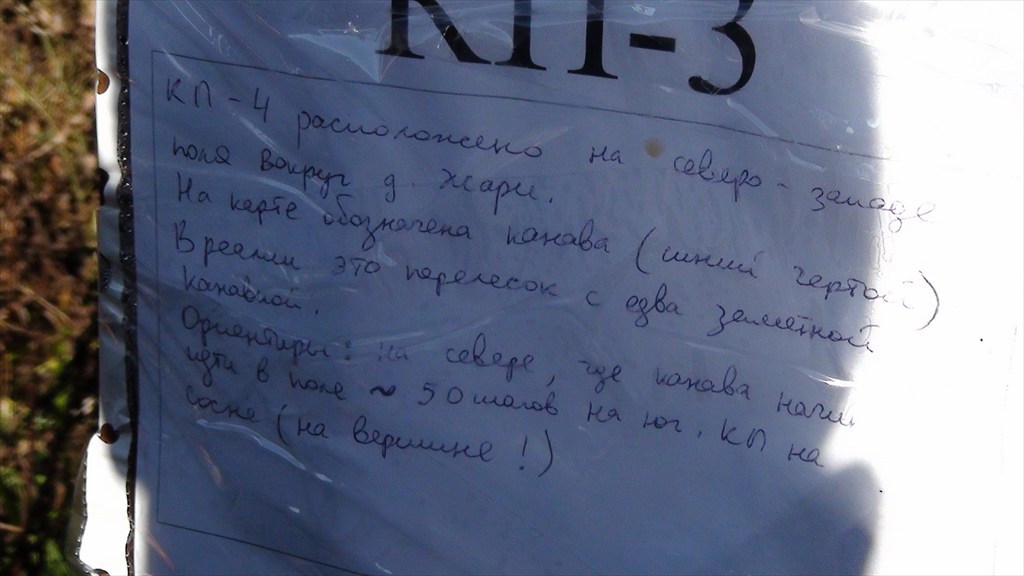 КП-3
КП-4 расположено на северо-западе
поля вокруг д. Жары.
На карте обозначена канава (синий чертой)
В реалии это перелесок с едва заметной
канавкой.
Ориентиры: на севере, где канава начин.
идти в поле ~ 50 шагов на юг. КП на
сосне (на вершине!)